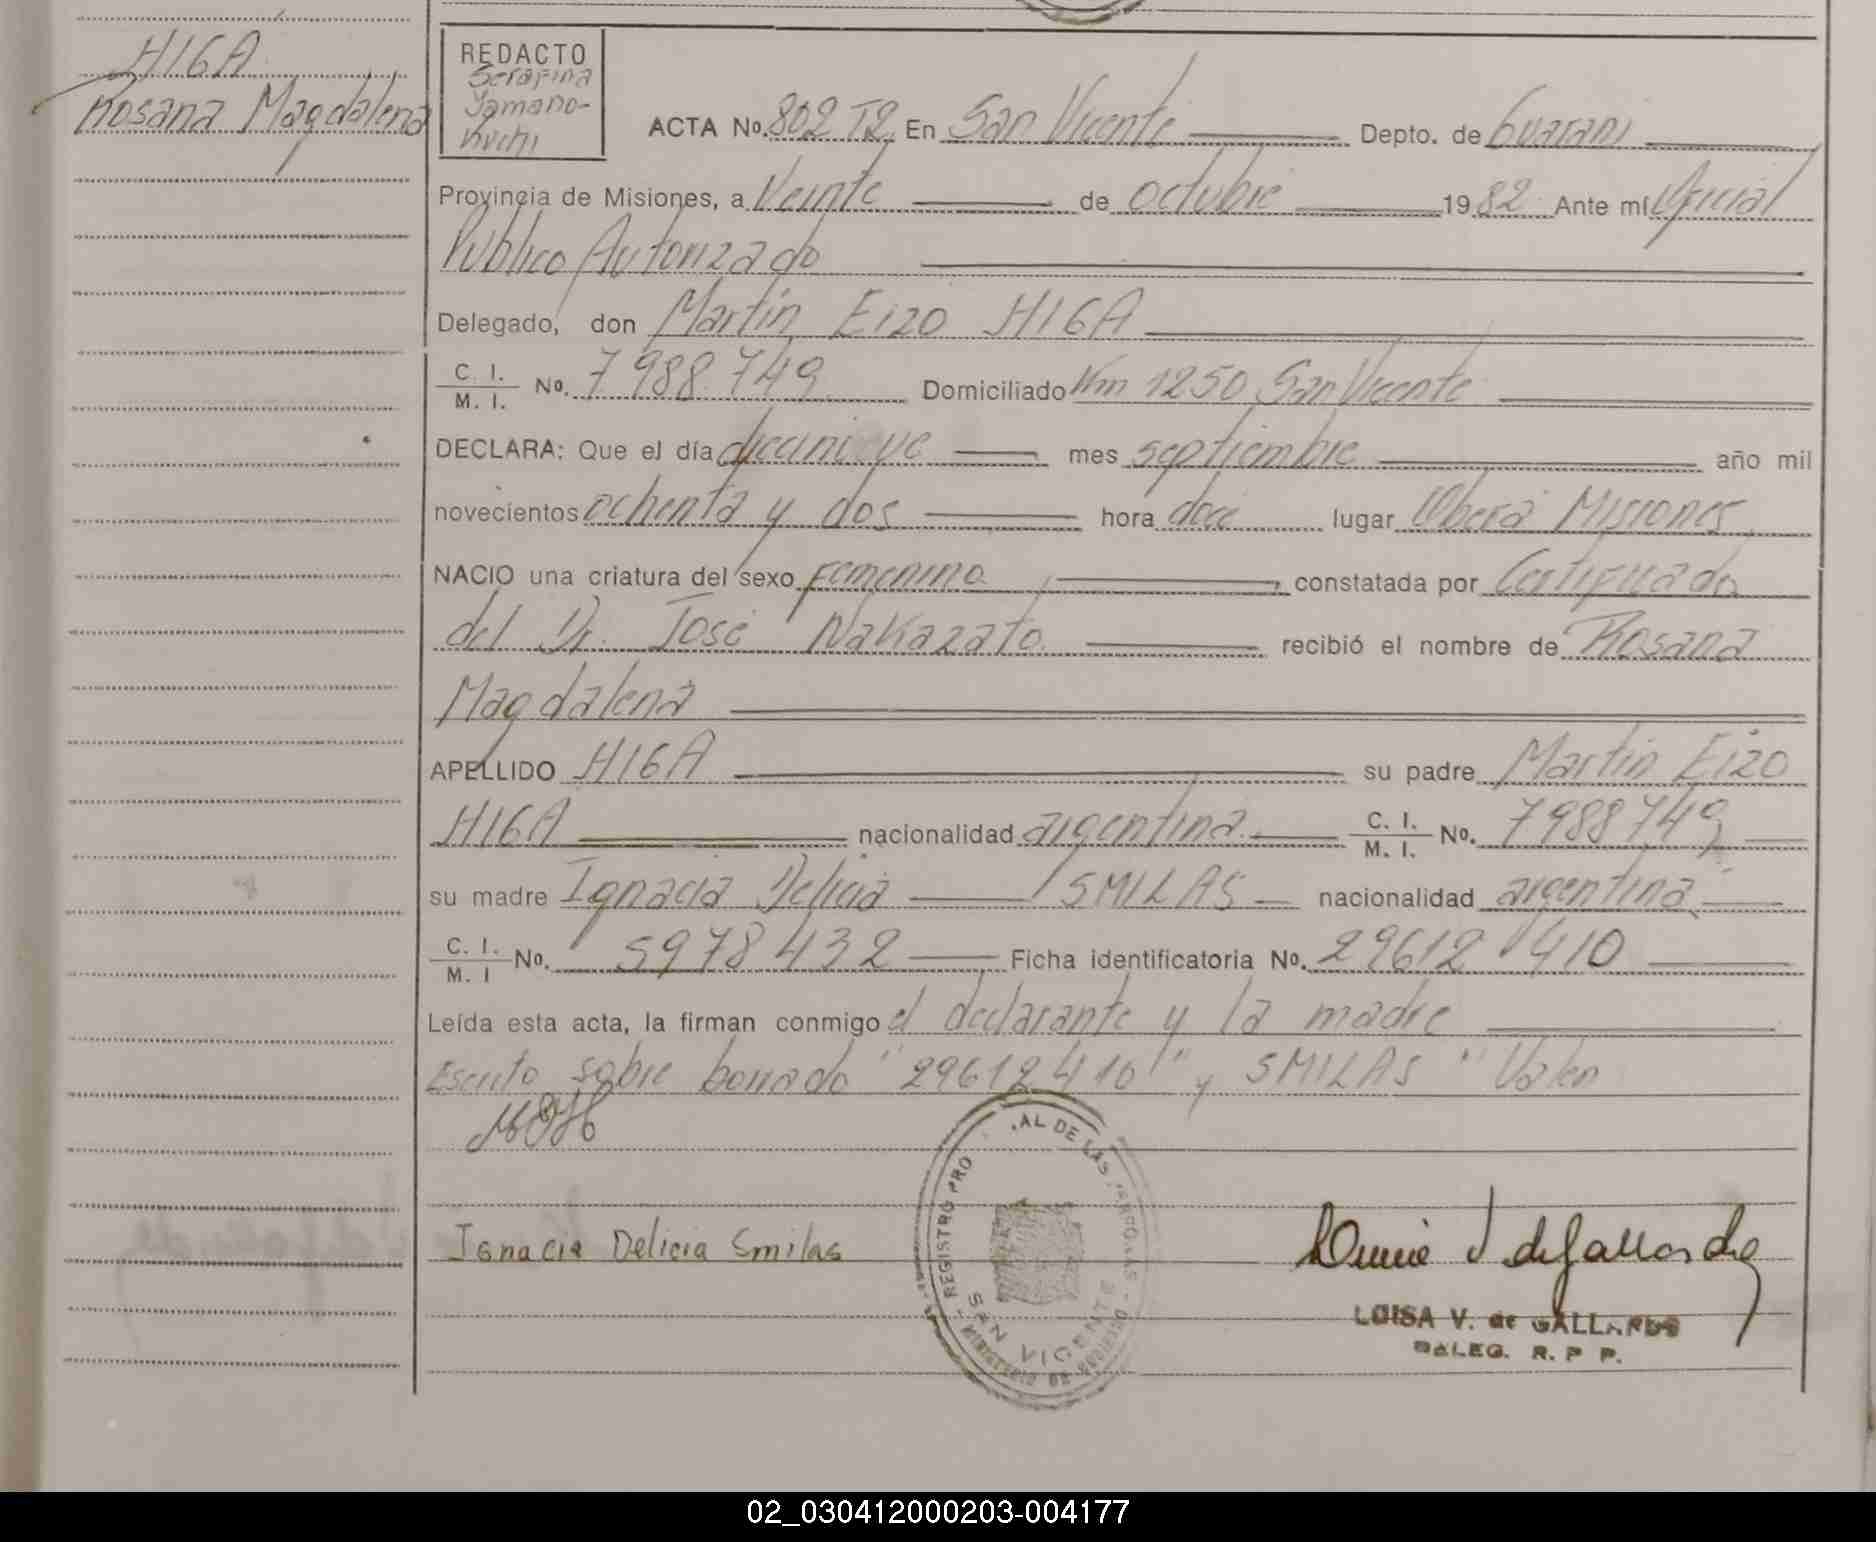 HIGA
Rosana Magdalena
REDACTO
Serafina
Yamano-
kuchi
ACTA No. 802 T2 En San Vicente Depto. de Guarani
Provincia de Misiones, a Veinte de octubre 1982 Ante mí Oficial
Público Autorizado
Delegado, don Martín Eizo HIGA
C. I.
M. I. No. 7 988 749 Domiciliado Km 1250 San Vicente
DECLARA: Que el día diecinueve mes septiembre año mil
novecientos ochenta y dos hora doce lugar Oberá Misiones
NACIO una criatura del sexo femenino constatada por Certificado
del Dr. José Nakazato recibió el nombre de Rosana
Magdalena
APELLIDO HIGA su padre Martín Eizo
HIGA nacionalidad argentina C. I.
M. I. No. 7988749
su madre Ignacia Delicia SMILAS nacionalidad argentina
C. I.
M. I No. 5978432 Ficha identificatoria No. 29612410
Leída esta acta, la firman conmigo el declarante y la madre
Escrito sobre borrado "29612410" y SMILAS" Valen
Ignacia Delicia Smilas
REGISTRO PRO AL DE LAS PERSONAS
SAN VICENTE
MINISTERIO DE GOBIERNO
LUISA V. de GALLARDO
DELEG. R. P P.
02_030412000203-004177